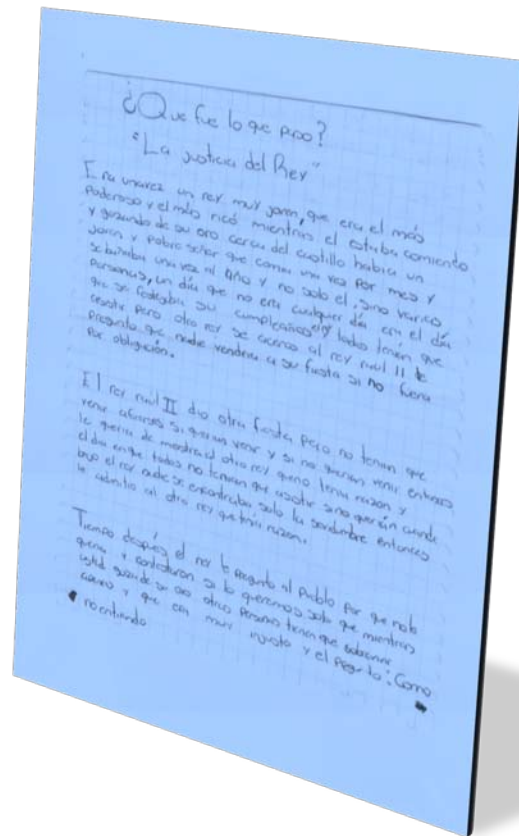 ¿Que fue lo que paso?
"La justicia del Rey"
Era una vez un rey muy joven, que era el más
Poderoso y el más ricó mientras el estaba comiendo
y gozando de su oro cerca del castillo habia un
joven y pobre señor que comia una vez por mes y
se bañaba una vez al año y no solo el, sino varias
Personas, un día que no era cualquier día era el día
que se festejaba su cumpleaños y todos tenian que
pero otro rey se acerco al rey raul II le
Pregunto que nadie vendria a su fiesta si no fuera
Por obligación.
El rey raul II dio otra fiesta pero no tenian que
venir si querian venir y si no querian venir entonces
le queria de mostrar al otro rey que no tenia razon y
el dia en que todos no tenian que asistir sino querian cuando
bajo el rey nadie se encontraba solo la servidumbre entonces
le al otro rey que tenia razon.
Tiempo después el rey le pregunto al Pueblo Por que no lo
queria y contestaron si lo queremos solo que mientras
usted goza de su oro otras Personas tienen que
y que era muy injusto y el : Como
no entiendo